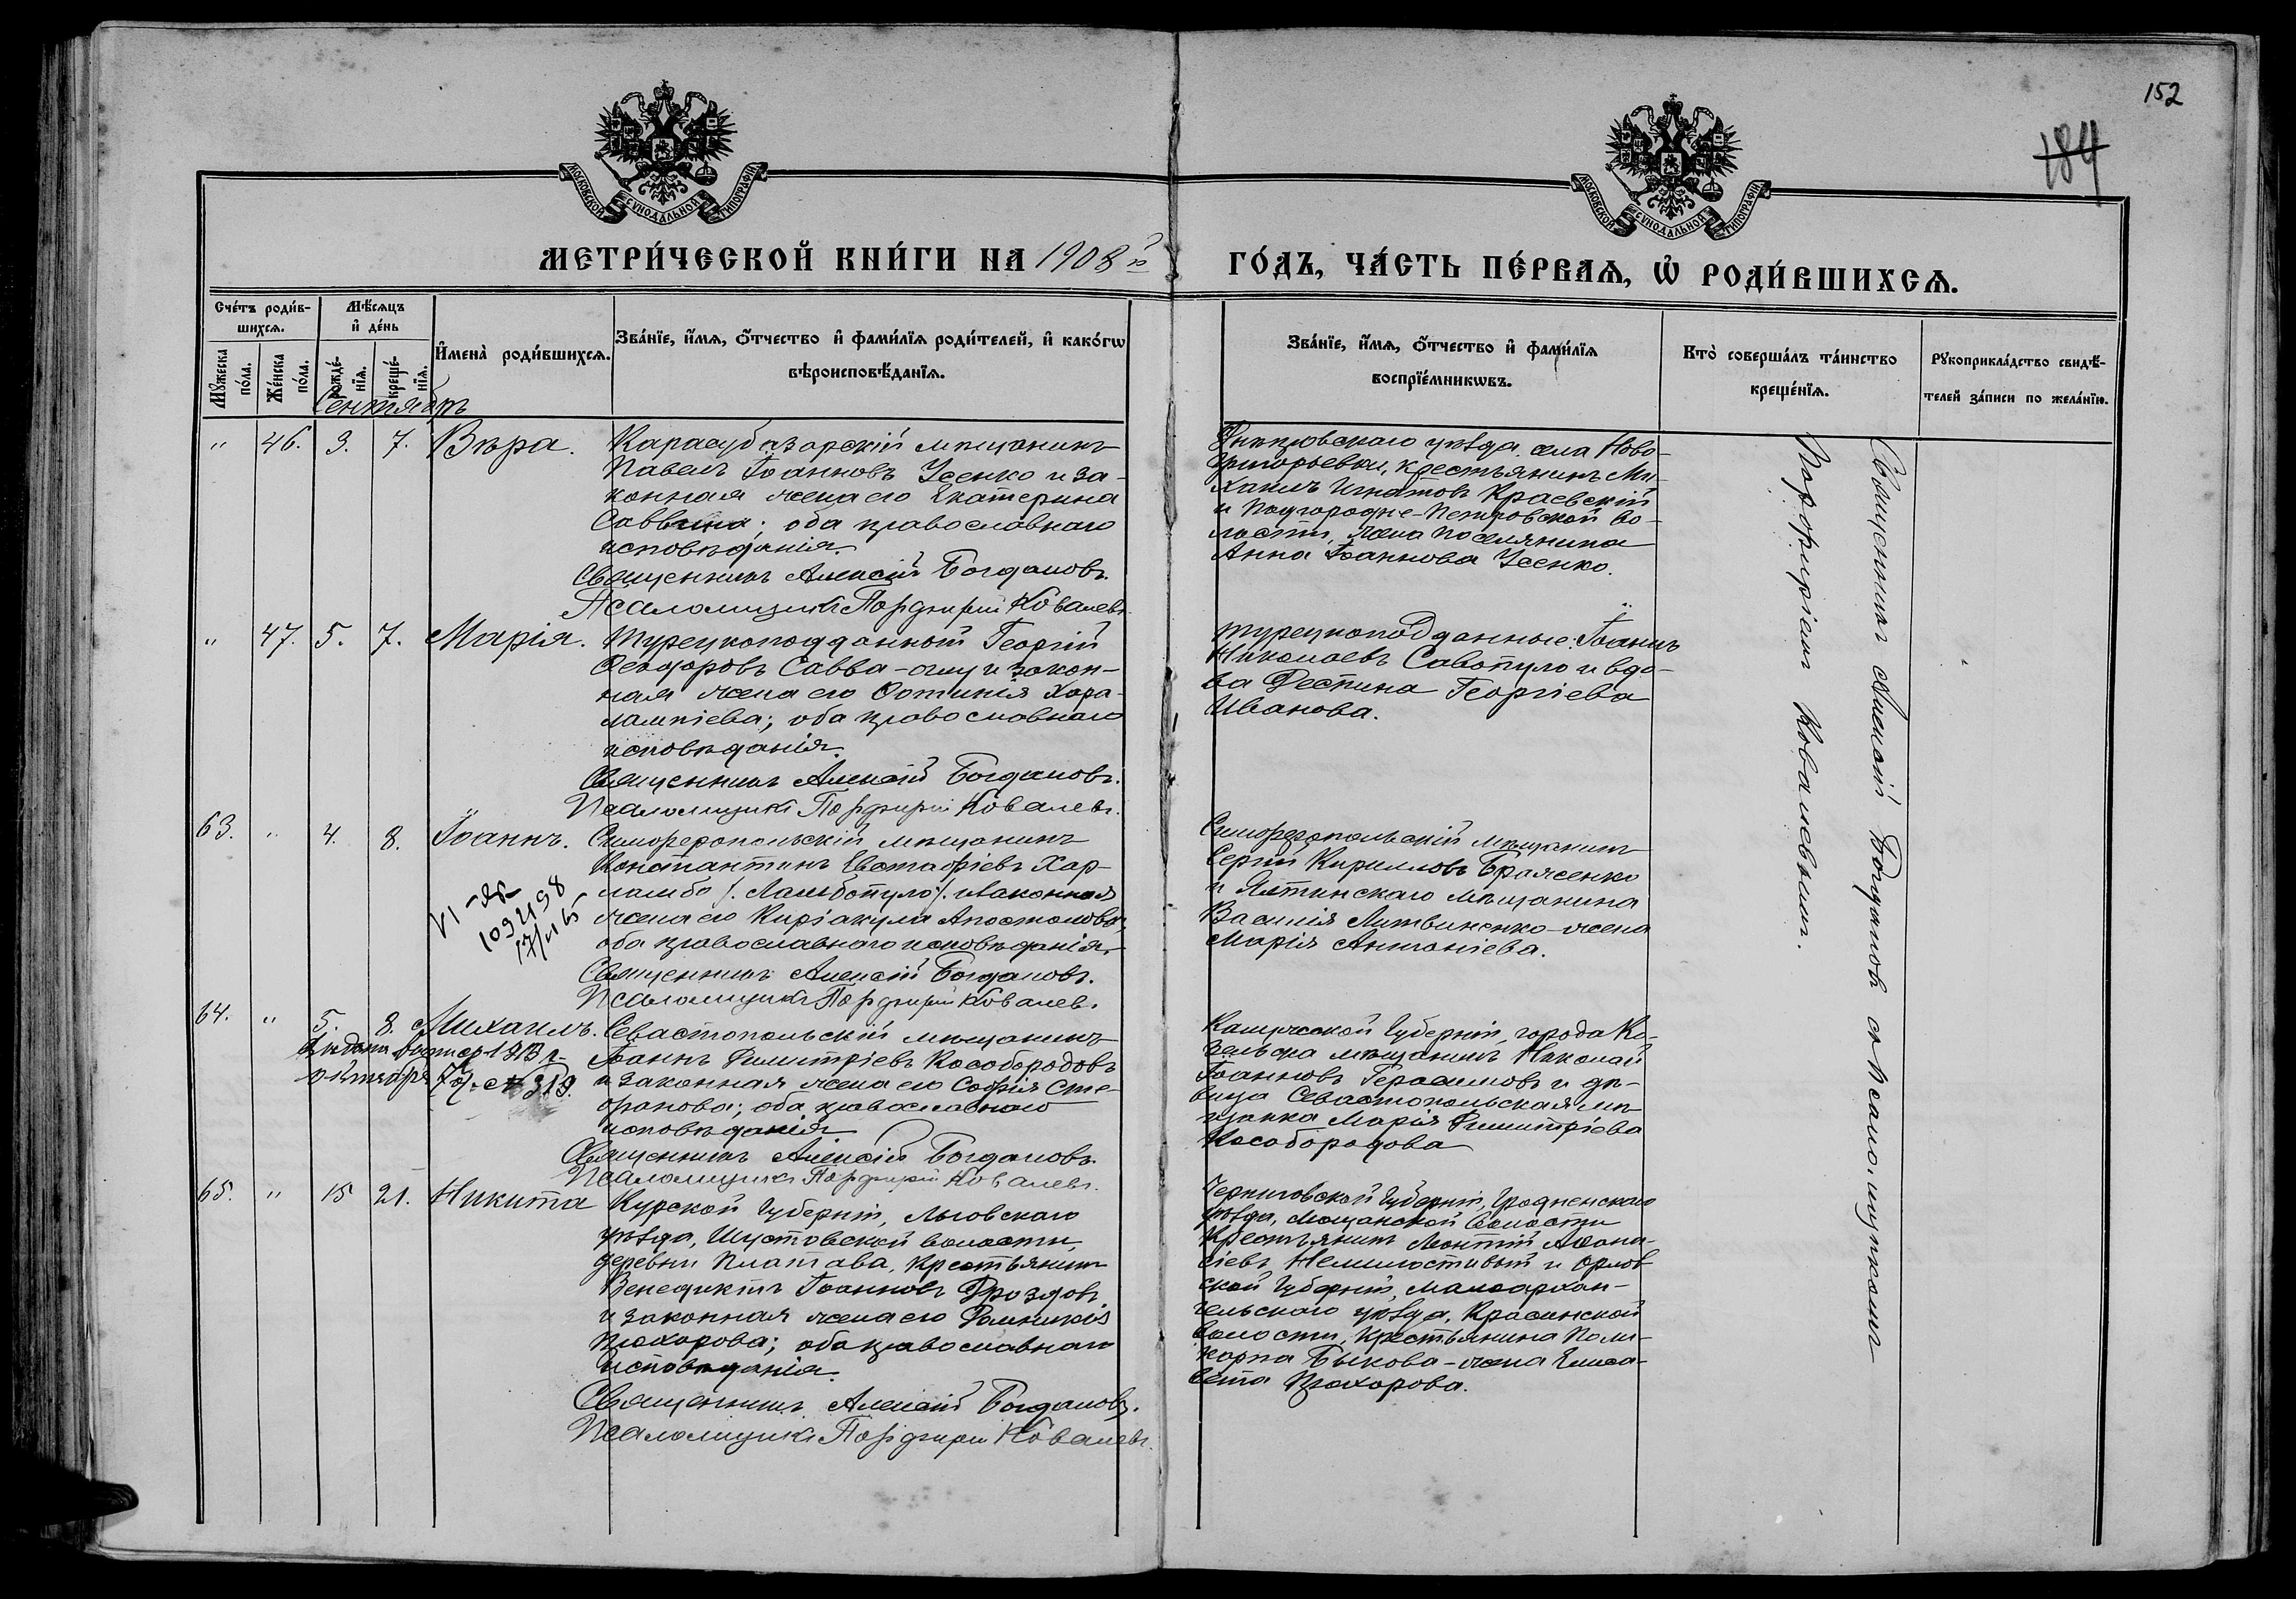 152
184
МОСКОВСКОЙ СУНОДАЛЬНОЙ ТИПОГРАФІИ
МОСКОВСКОЙ СУНОДАЛЬНОЙ ТИПОГРАФІИ
МЕТРИ́ЧЕСКОЙ КНИ́ГИ НА 1908 й
ГО́ДЪ, ЧА́СТЬ ПЕ́РВАѦ, Ѡ҆ РОДИ́ВШИХСѦ.
Сче́тъ роди́в-
шихсѧ.
Мѣ́сѧцъ
и҆ де́нь
Мꙋ́жеска по́ла.
Же́нска по́ла.
рожде́-нїѧ.
креще́-нїѧ.
И҆мена̀ роди́вшихсѧ.
Зва́нїе, и҆́мѧ, ѻ҆́тчество и҆ фами́лїѧ роди́телей, и҆ како́гѡ
вѣроисповѣ́данїѧ.
Зва́нїе, и҆́мѧ, ѻ҆́тчество и҆ фами́лїѧ
воспрїе́мникѡвъ.
Кто̀ соверша́лъ та́инство
креще́нїѧ.
Рꙋкоприкла́дство свидѣ́-
телей за́писи по жела́нїю.
Сентябрь
" 46. 3. 7. Вѣра. Карасубазарскій мѣщанинъ
Павелъ Іоанновъ Усенко и за-
конная жена его Екатерина
Саввина; оба православнаго
исповѣданія.
Священникъ Алексій Богдановъ.
Псаломщикъ Порфирій Ковалевъ.
Днѣпровскаго уѣзда, села Ново-
григорьевки, крестьянинъ Ми-
хаилъ Игнатовъ Краевскій
и Подгородне-Петровской во-
лости, жена поселянина
Анна Іоаннова Усенко.
" 47. 5. 7. Марія. Турецкоподданный Георгій
Ѳеодоровъ Савва-оглу и закон-
ная жена его Фотинія Хара-
лампіева; оба православнаго
исповѣданія.
Священникъ Алексій Богдановъ.
Псаломщикъ Порфирій Ковалевъ.
турецкоподданные: Іоаннъ
Николаевъ Савопуло и вдо-
ва Деспина Георгіева
Иванова.
63. " 4. 8. Іоаннъ. Симферопольскій мѣщанинъ
Константинъ Евстафіевъ Хар-
ламбо /. Ламбопуло /. и законная
жена его Киріакула Апостолова,
оба православнаго исповѣданія.
Священникъ Алексій Богдановъ.
Псаломщикъ Порфирій Ковалевъ.
VI-ЯР
109498
Симферопольскій мѣщанинъ
Сергій Кирилловъ Браженко
и Ялтинскаго мѣщанина
Василія Литвиненко-жена
Марія Антоніева.
64. " 5. 8. Михаилъ. Севастопольскій мѣщанинъ
Іоаннъ Димитріевъ Кособородовъ
и законная жена его Софія Сте-
фанова; оба православнаго
исповѣданія
Священникъ Алексій Богдановъ.
Псаломщикъ Порфирій Ковалевъ.
1913 г.
октября 7 д. № 319.
Калужской губерніи, города Ко-
зельска мѣщанинъ Николай
Іоанновъ Герасимовъ и дѣ-
вица Севастопольская мѣ-
щанка Марія Димитріева
Кособородова
65. " 15 21. Никита Курской губерніи, Льговскаго
уѣзда, Шустовской волости,
деревни Платава, крестьянинъ
Венедиктъ Іоанновъ Дроздовъ
и законная жена его Домникія
Прохорова; оба православнаго
исповѣданія.
Священникъ Алексій Богдановъ.
Псаломщикъ Порфирій Ковалевъ.
Черниговской губерніи, Гродненскаго
уѣзда, волости
крестьянинъ Леонтій Аѳана-
сіевъ Немилостивый и Орлов-
ской губерніи, Малоархан-
гельскаго уѣзда, Красинской
волости, крестьянина Поли-
карпа Быкова-жена Елиса-
вета Прохорова.
Священникъ Алексій Богдановъ съ псаломщикомъ
Порфиріемъ Ковалевымъ.